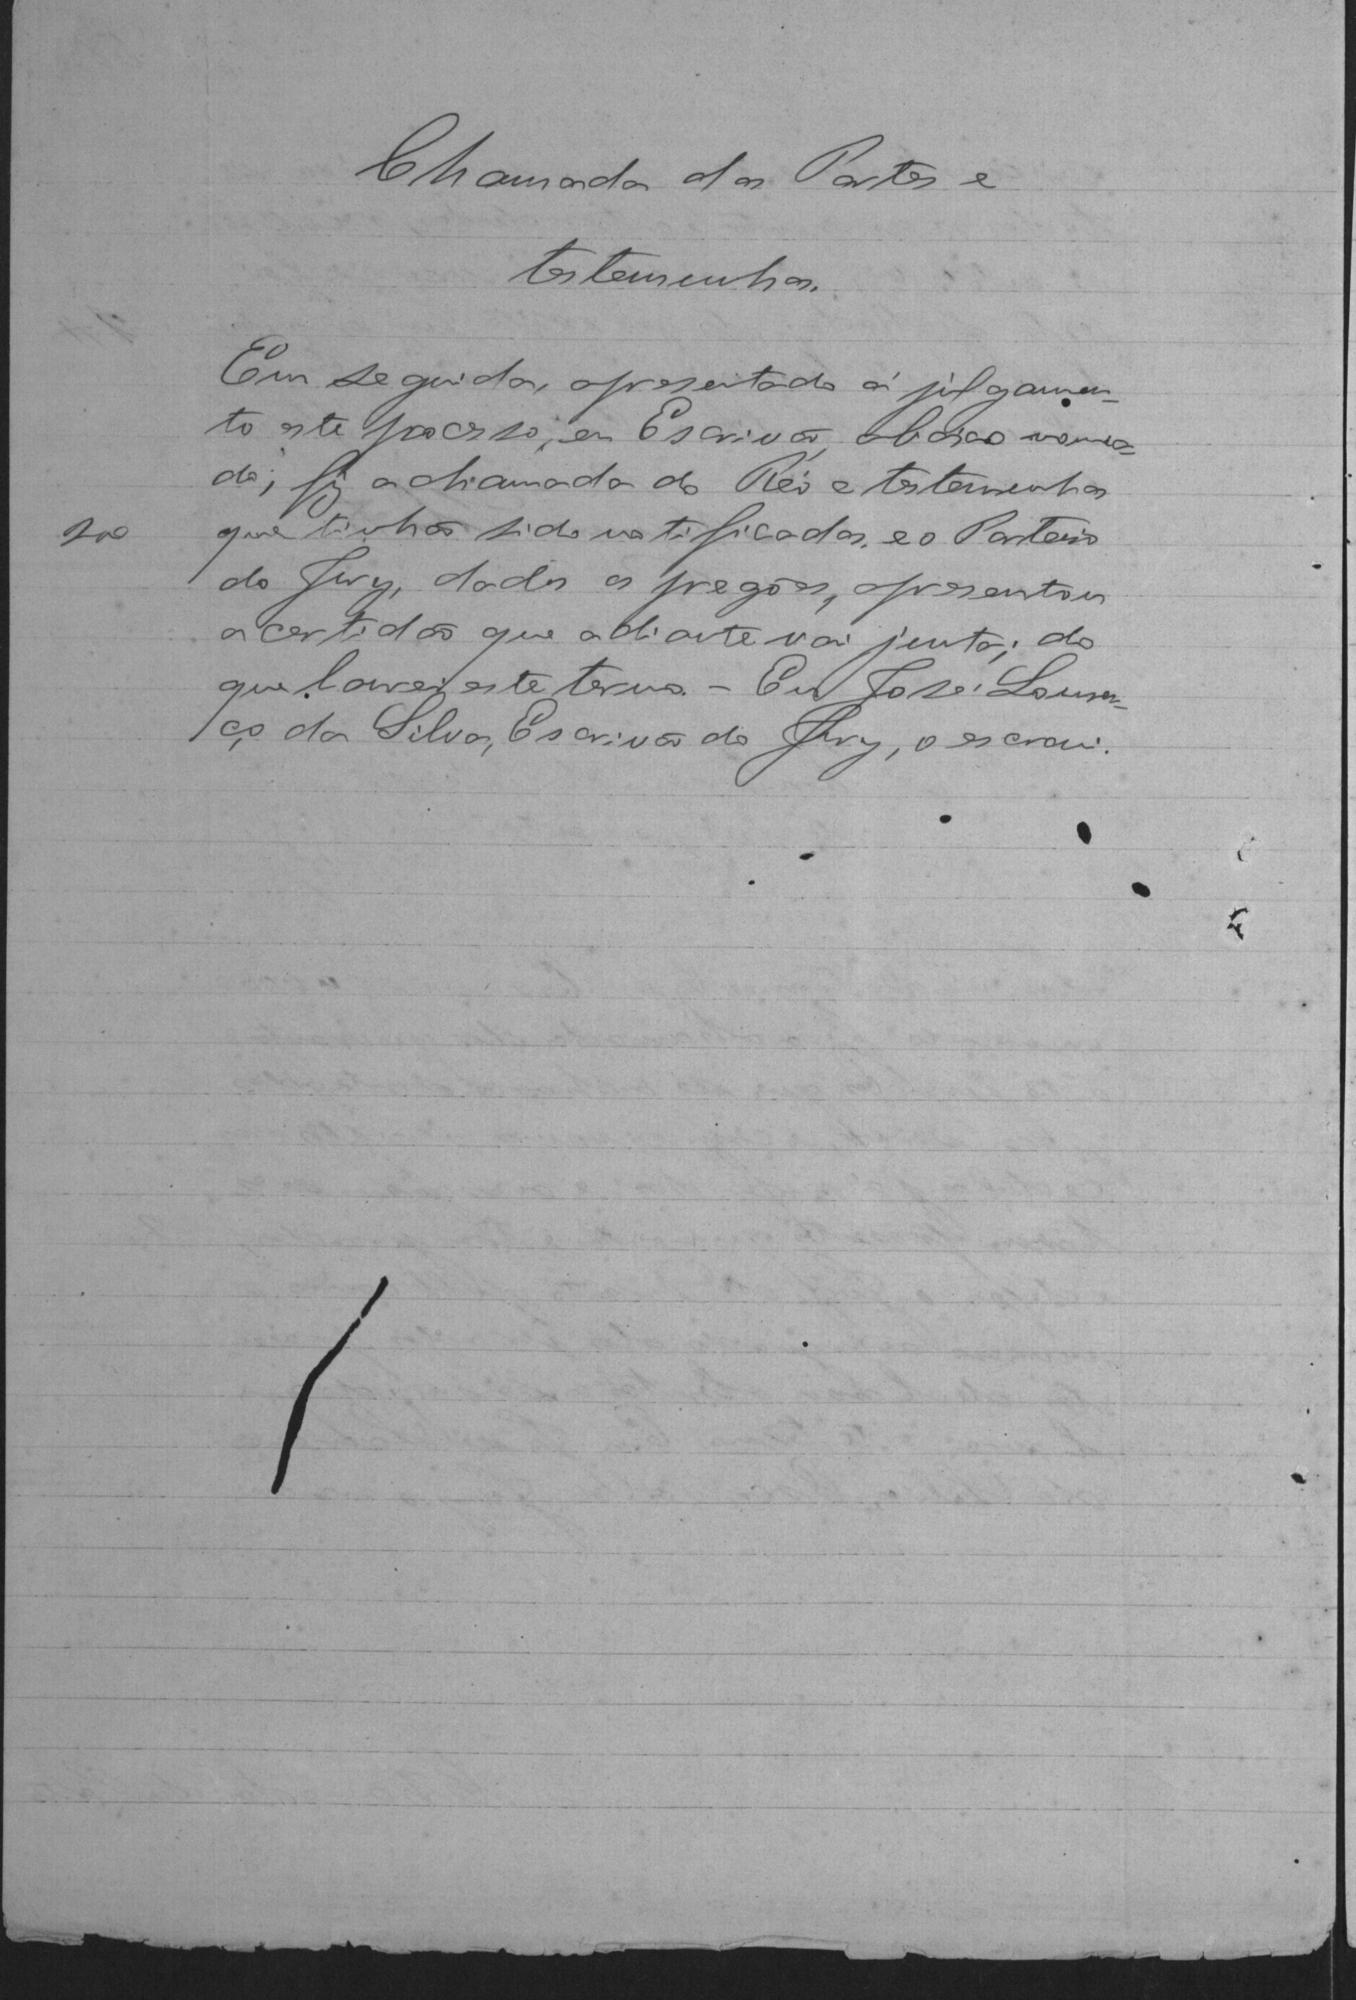 Chamada das Partes e
testemunhas.
Em seguida, apresentado á julgamen-
to este processo, eu Escrivão, abaixo nomea-
do, fiz a chamada do Réo e testemunhas
que tinhão sido notificadas, e o Porteiro
do Jury, dados os pregões, apresentou
a certidão que adiante vai junta; do
que lavrei este termo. - Eu José Louren-
ço da Silva, Escrivão do Jury, o escrevi.